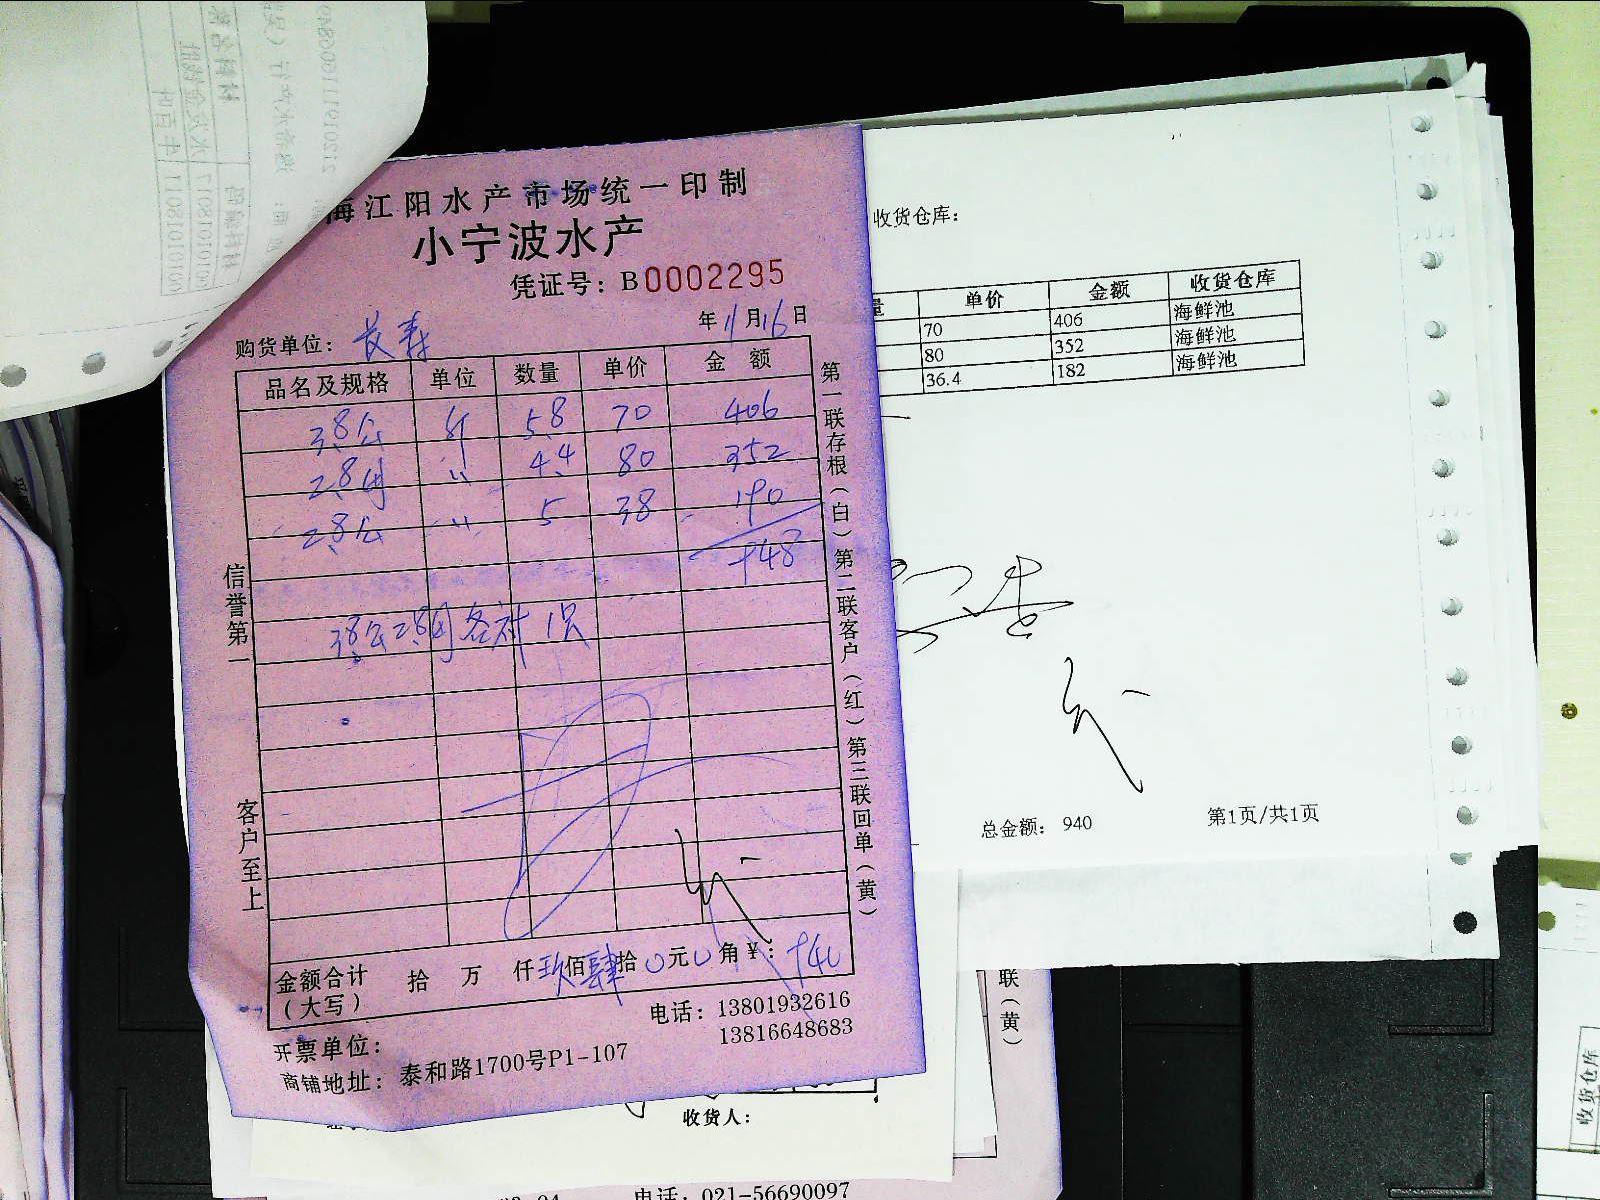 海江阳水产市场统一印制
小宁波水产
凭证号：B0002295
年11月16日
购货单位：长寿
品名及规格 单位 数量 单价 金 额
3.8公 斤 5.8 70 406
2.8母 〃 4.4 80 352
2.8公 〃 5 38 190
948
3.8公2.8母各对1只
信誉第一
客户至上
第一联存根（白）第二联客户（红）第三联回单（黄）
金额合计（大写） 拾 万 仟玖佰肆拾0元0角￥：940
电话：13801932616
13816648683
开票单位：
商铺地址：泰和路1700号P1-107
收货仓库：
量 单价 金额 收货仓库
70 406 海鲜池
80 352 海鲜池
36.4 182 海鲜池
总金额： 940 第1页/共1页
联（黄）
收货人：
电话：021-56690097
收货仓库